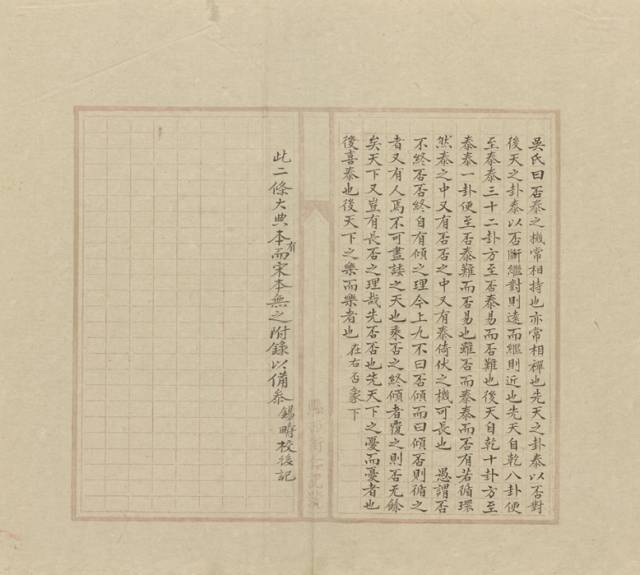 吳氏曰否泰之機常相持也亦常相禪也先天之卦泰以否對
後天之卦泰以否斷繼對則遠而繼則近也先天自乾八卦便
至泰泰三十二卦方至否泰易而否難也後天自乾十卦方至
泰泰一卦便至否泰難而否易也難否而泰泰而否有若循環
然泰之中又有否否之中又有泰倚伏之機可長也 愚謂否
不終否否終自有傾之理今上九不曰否傾而曰傾否則循之
者又有人焉不可盡諉之天也乘否之終傾者覆之則否无餘
矣天下又豈有長否之理哉先否否也先天下之憂而憂者也
後喜泰也後天下之樂而樂者也 在右否象下
此二條大典本有而宋本無之附錄以備參 錫疇校後記